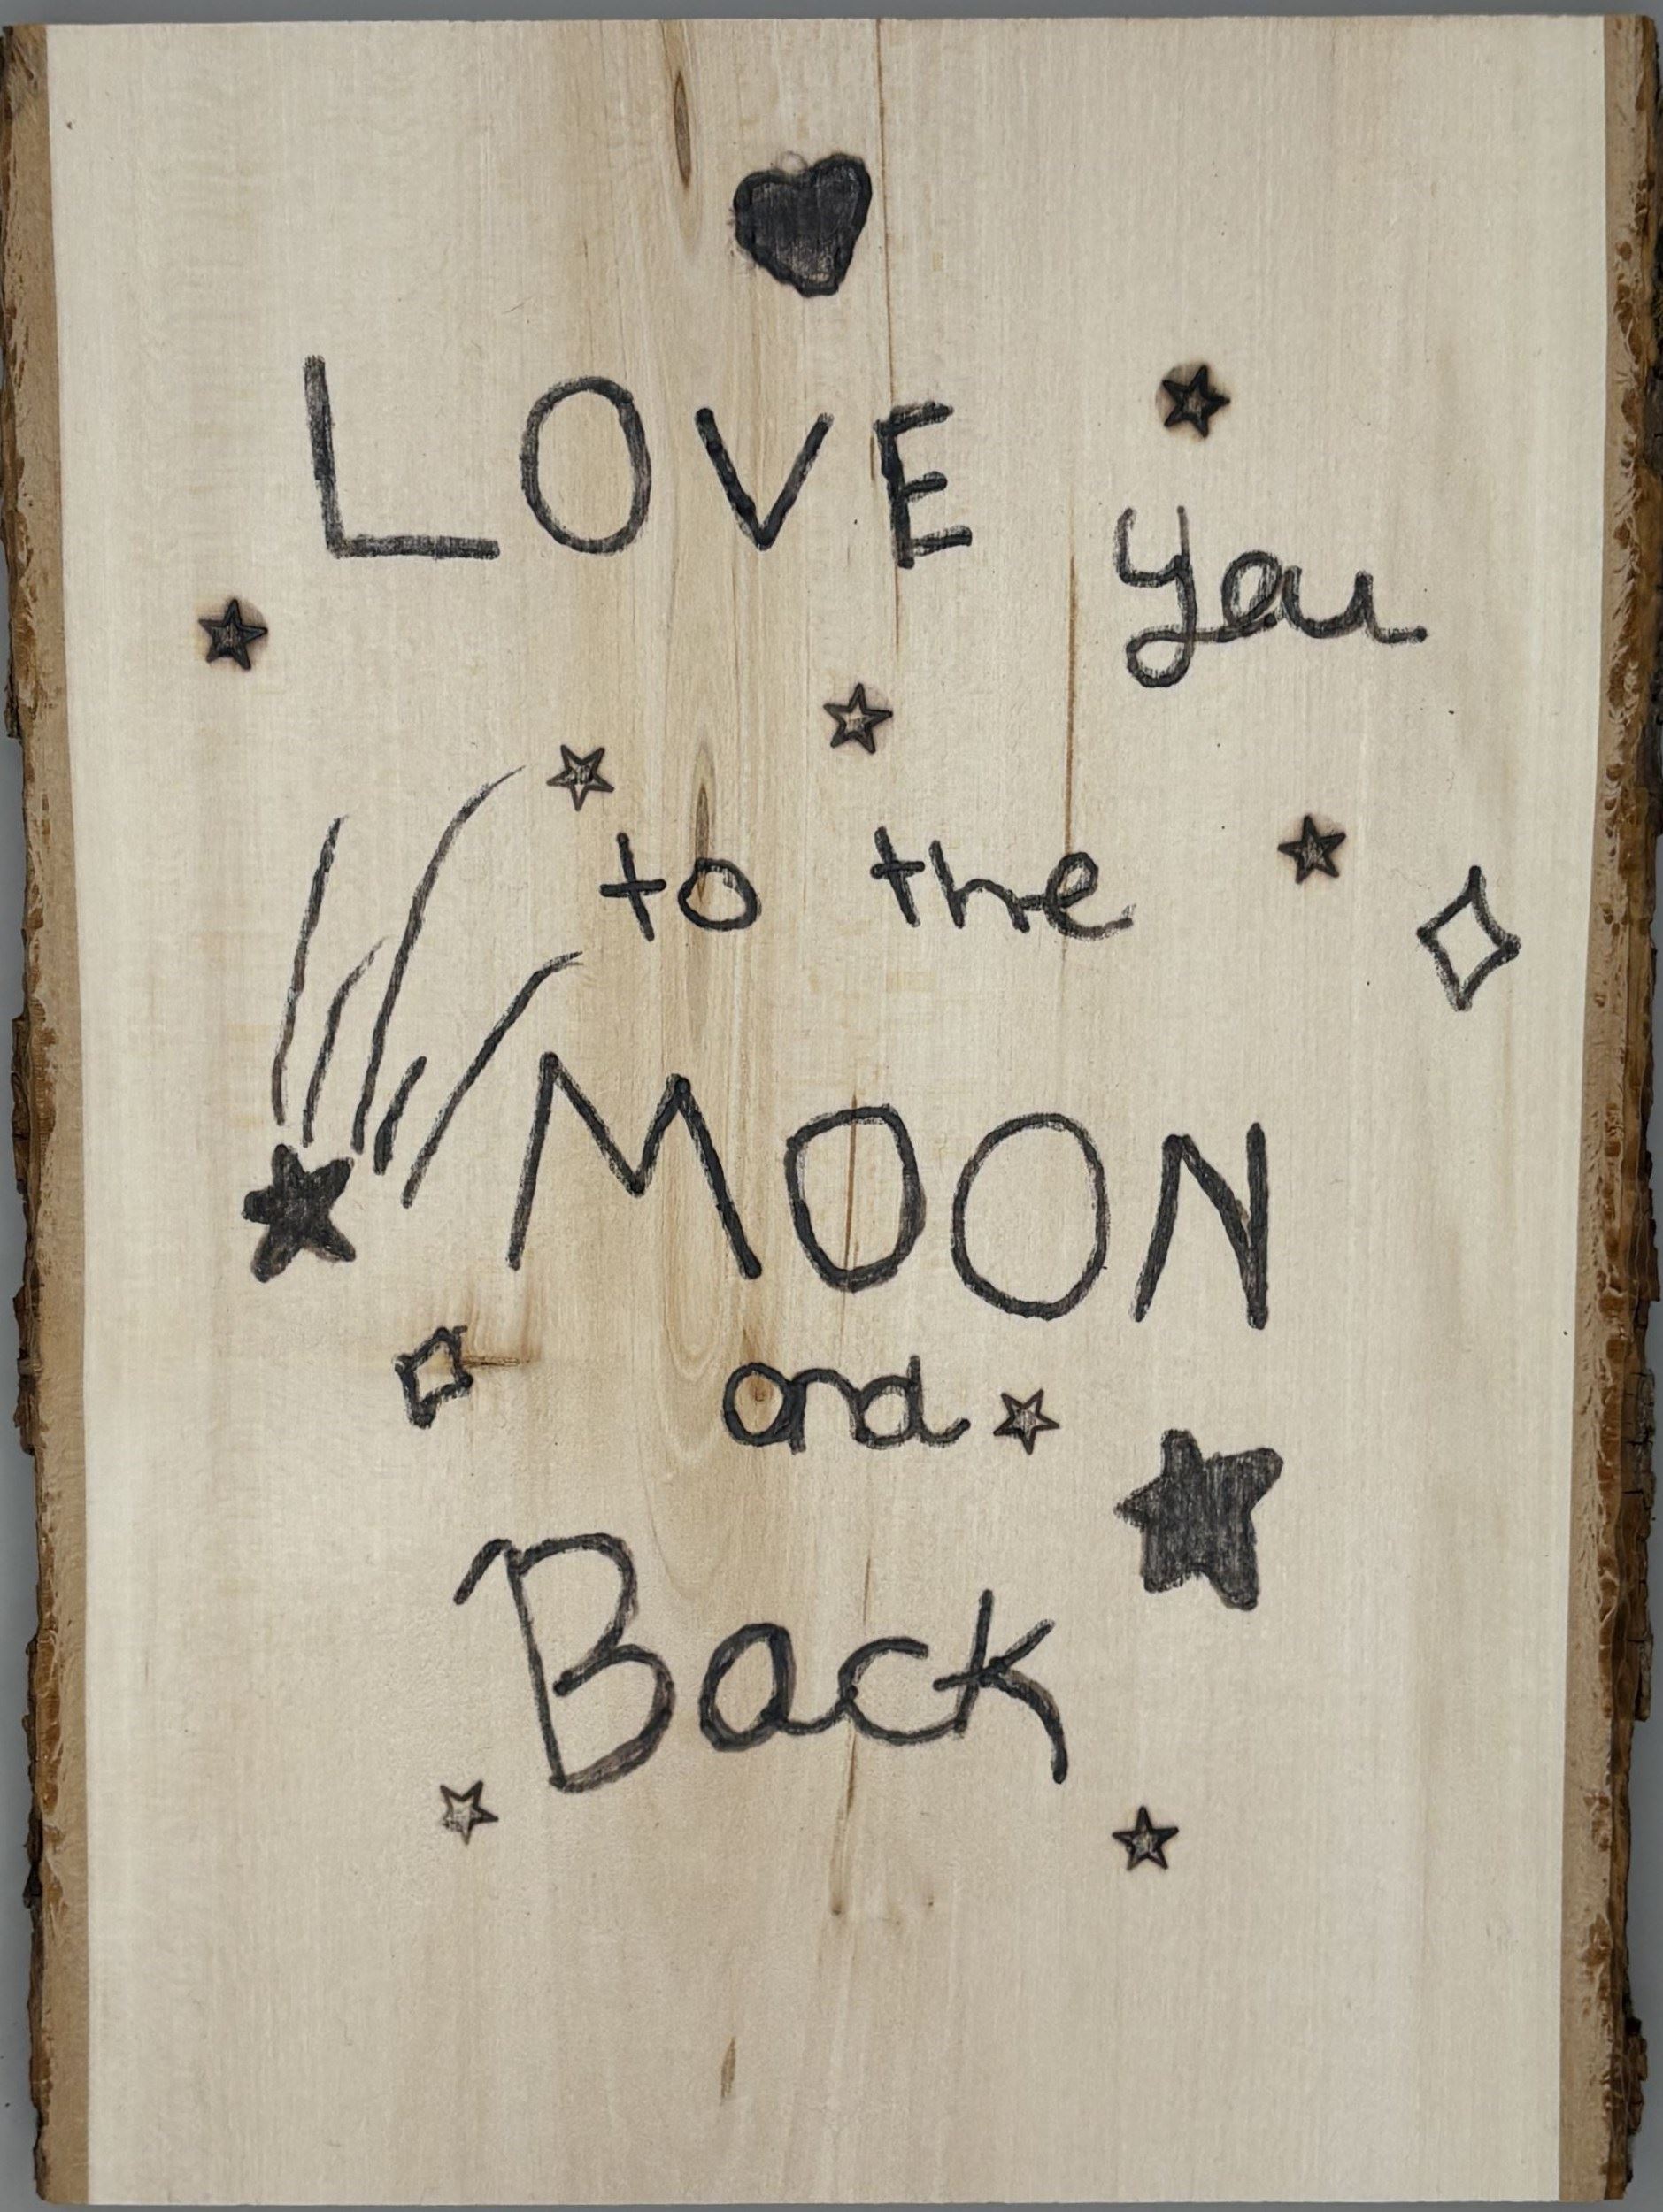 LOVE you
to the
MOON
and
Back